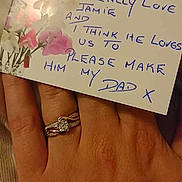 REALLY LOVE
JAMIE
AND
I THINK HE LOVES
US TO
PLEASE MAKE
HIM MY DAD X